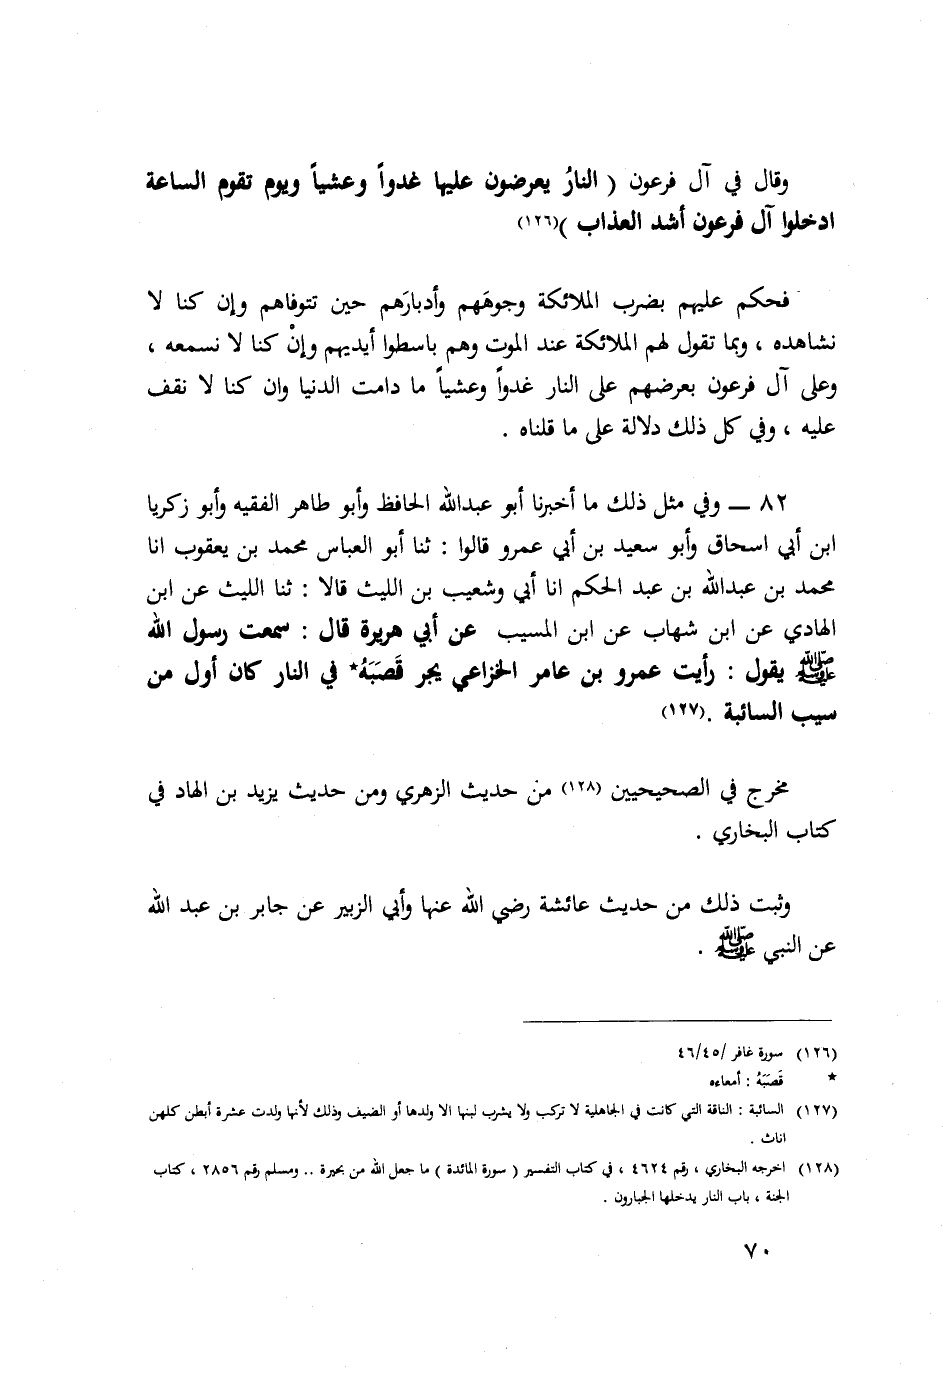 وقال في آل فرعون ( النارُ يعرضون عليها غدواً وعشياً ويوم تقوم الساعة
ادخلوا آل فرعون أشد العذاب )(١٢٦)
فحكم عليهم بضرب الملائكة وجوهَهم وأدبارَهم حين تتوفاهم وإن كنا لا
نشاهده ، وبما تقول لهم الملائكة عند الموت وهم باسطوا أيديهم وإنْ كنا لا نسمعه ،
وعلى آل فرعون بعرضهم على النار غدواً وعشياً ما دامت الدنيا وان كنا لا نقف
عليه ، وفي كل ذلك دلالة على ما قلناه .
٨٢ ــ وفي مثل ذلك ما أخبرنا أبو عبدالله الحافظ وأبو طاهر الفقيه وأبو زكريا
ابن أبي اسحاق وأبو سعيد بن أبي عمرو قالوا : ثنا أبو العباس محمد بن يعقوب انا
محمد بن عبدالله بن عبد الحكم انا أبي وشعيب بن الليث قالا : ثنا الليث عن ابن
الهادي عن ابن شهاب عن ابن المسيب عن أبي هريرة قال : سمعت رسول الله
ﷺ يقول : رأيت عمرو بن عامر الخزاعي يجر قَصَبَهُ* في النار كان أول من
سيب السائبة .(١٢٧)
مخرج في الصحيحيين (١٢٨) من حديث الزهري ومن حديث يزيد بن الهاد في
كتاب البخاري .
وثبت ذلك من حديث عائشة رضي الله عنها وأبي الزبير عن جابر بن عبد الله
عن النبي ﷺ .
(١٢٦) سورة غافر /٤٦/٤٥
* قَصَبَهُ : أمعاءه
(١٢٧) السائبة : الناقة التي كانت في الجاهلية لا تركب ولا يشرب لبنها الا ولدها أو الضيف وذلك لأنها ولدت عشرة أبطن كلهن
اناث .
(١٢٨) اخرجه البخاري ، رقم ٤٦٢٤ ، في كتاب التفسير ( سورة المائدة ) ما جعل الله من بحيرة .. ومسلم رقم ٢٨٥٦ ، كتاب
الجنة ، باب النار يدخلها الجبارون .
٧٠